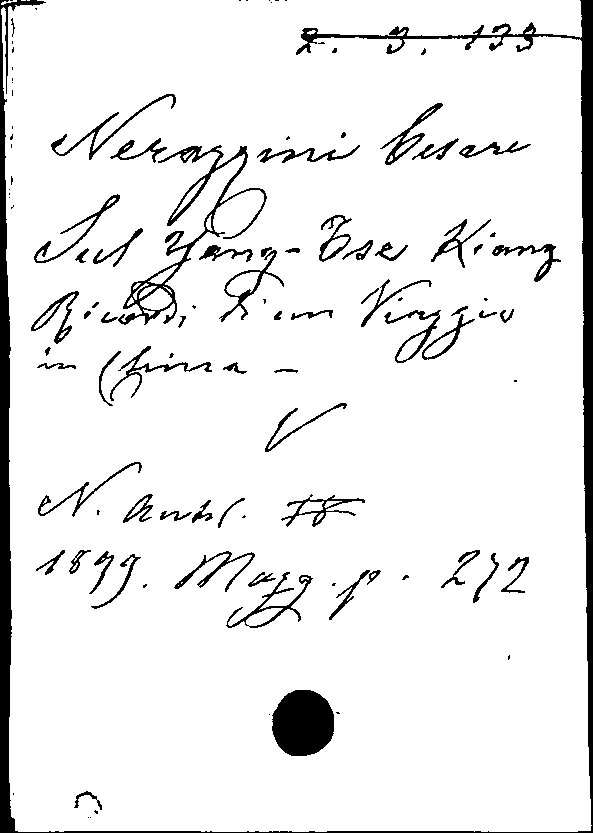 2. 3. 133
Nerazzini Cesare
Sul Yang-Tse Kiang
Ricordi di un Viaggio
in China -
V
N. Antol.
1899. Magg. p. 272